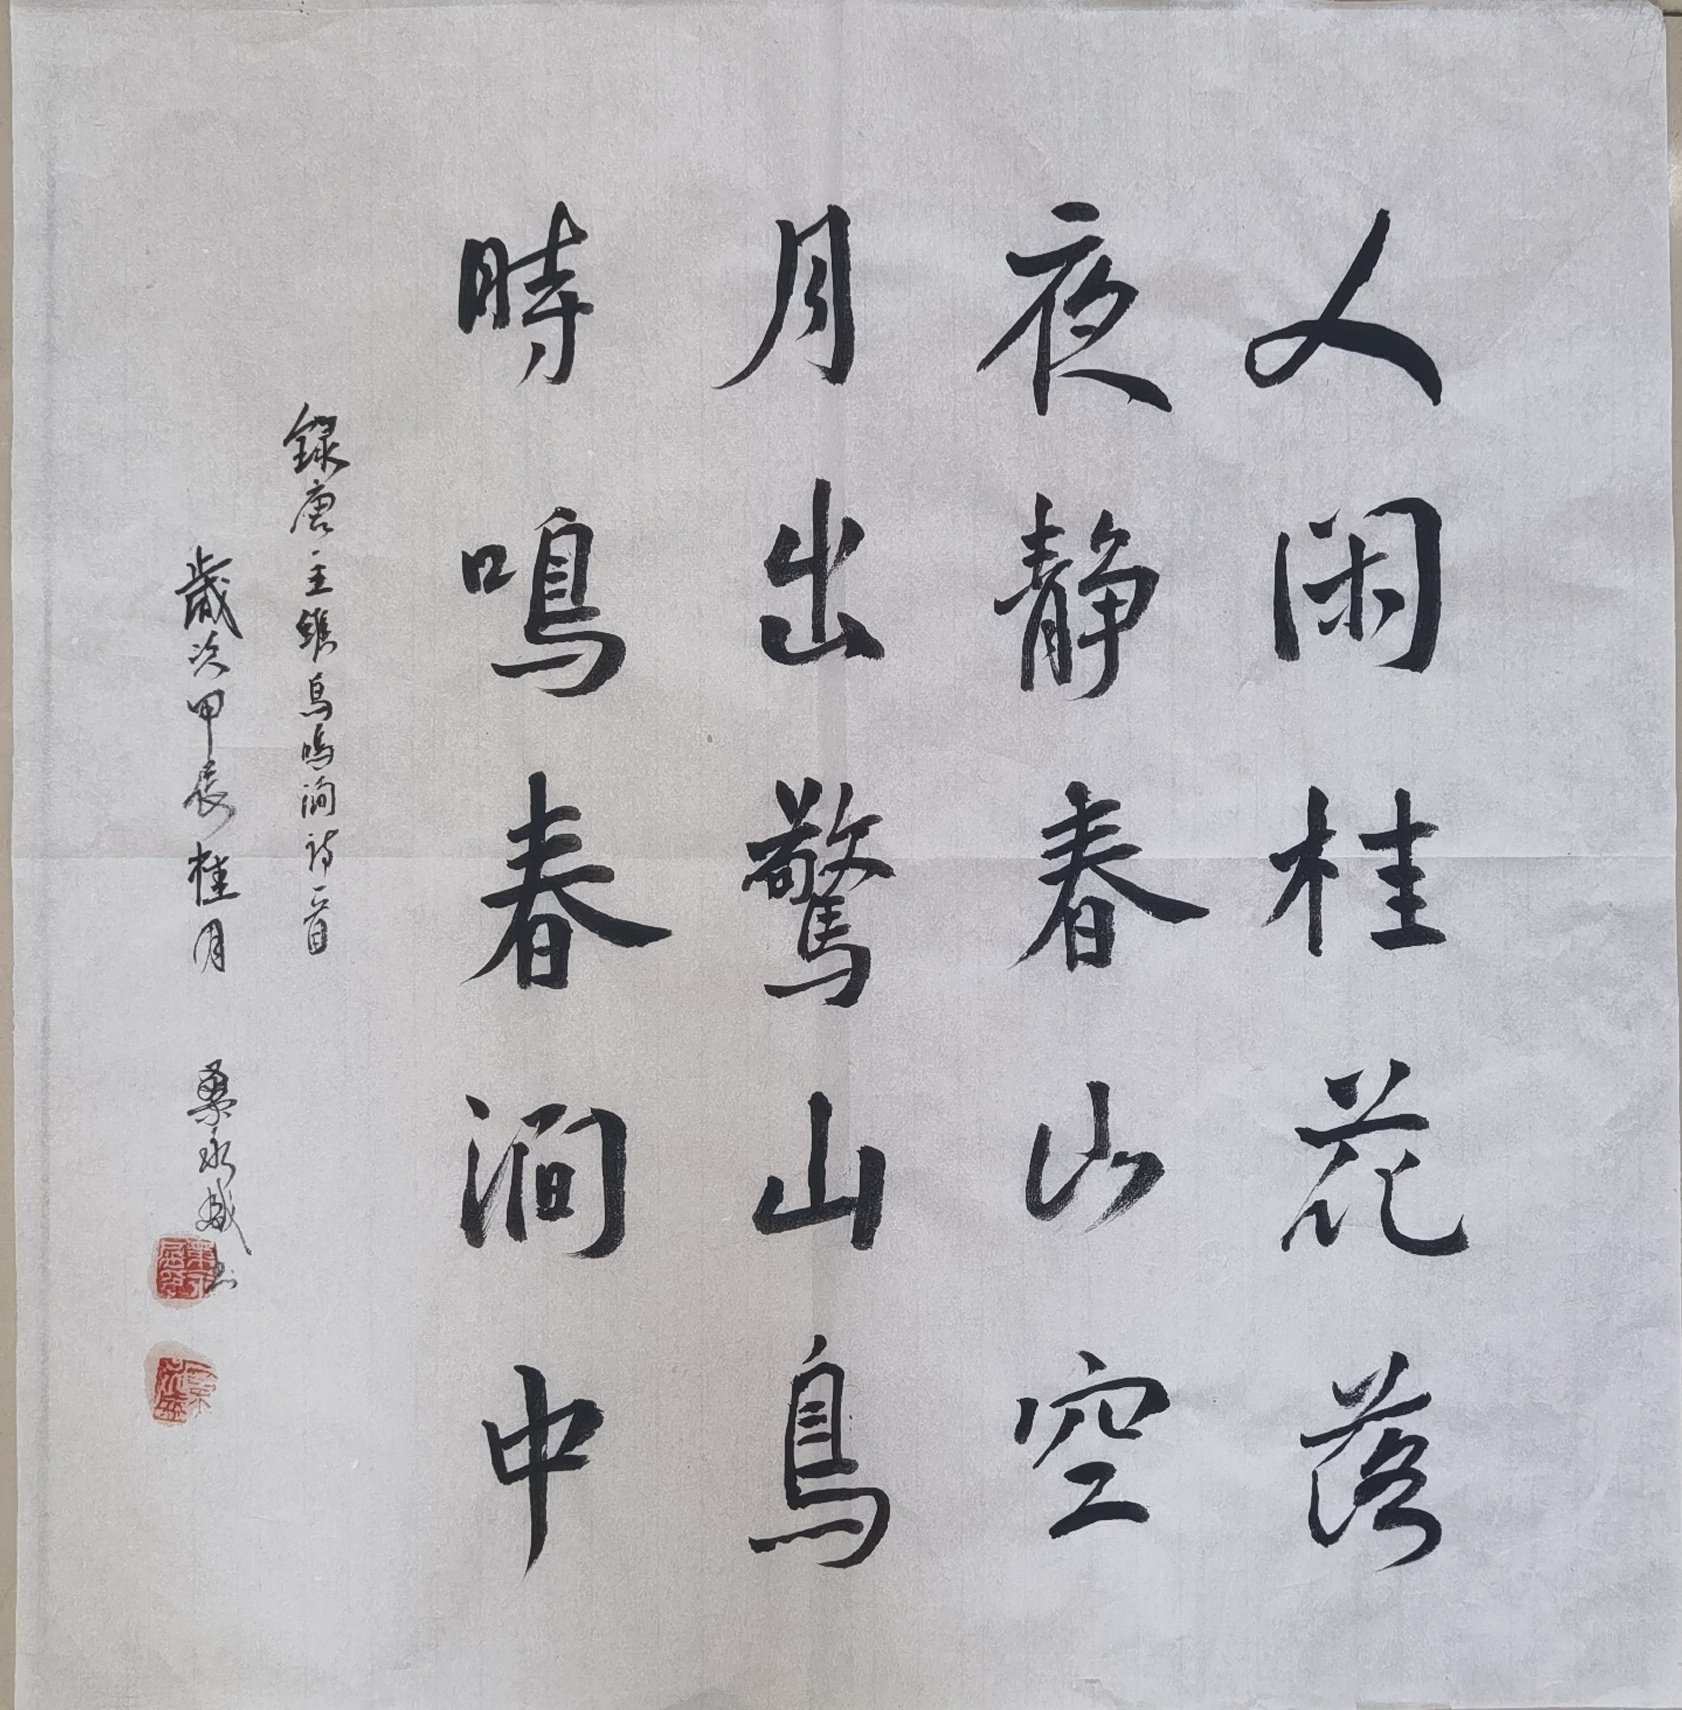 人闲桂花落
夜静春山空
月出驚山鳥
時鳴春澗中
録唐王維鳥鳴澗詩一首
歲次甲辰桂月
永盛书